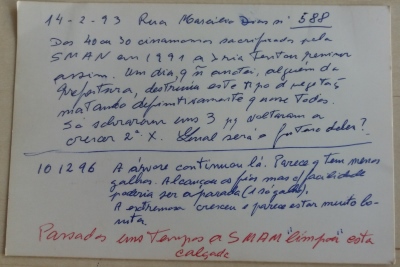 14-2-93 Rua Marcílio Dias nº 588
Dos 40 ou 30 cinamomos sacrificados pela
SMAM em 1991 a Iria tentou
assim. Um dia, q ñ anotei, alguém da
Prefeitura, destruiu este tipo d vegetaç
matando definitivamente quase todos.
Só sobraram uns 3 pq voltaram a
crescer 2ª X. Qual será o futuro deles?
10 12 96 A árvore continuou lá. Parece q tem menos
galhos. Alcançou os fios mas c/ facilidade
poderia ser aparada (1 só galho).
A extremosa cresceu e parece estar muito bo-
nita
Passados uns tempos a SMAM "limpou" esta
calçada